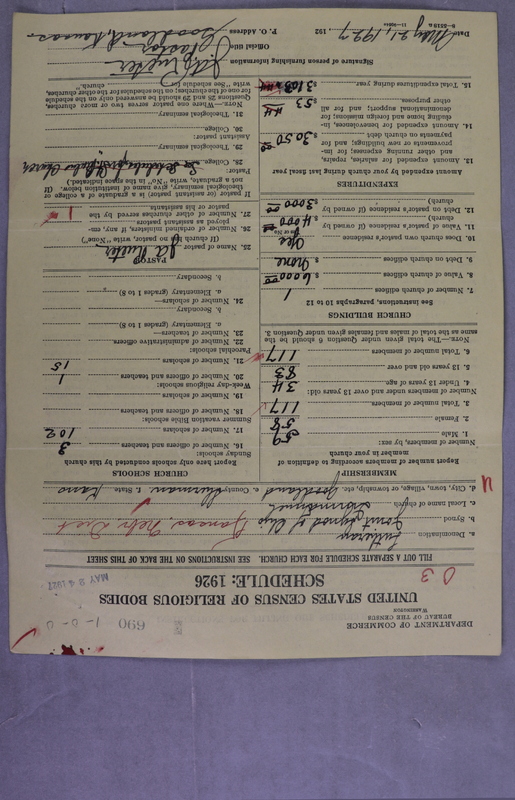 DEPARTMENT OF COMMERCE
BUREAU OF THE CENSUS
WASHINGTON
690
1-0-0
UNITED STATES CENSUS OF RELIGIOUS BODIES
SCHEDULE: 1926
MAY 24 1927
FILL OUT A SEPARATE SCHEDULE FOR EACH CHURCH. SEE INSTRUCTIONS ON THE BACK OF THIS SHEET
a. Denomination Lutheran
b. Synod Joint Synod of Ohio Kansas Nebr Dist
c. Local name of church Immanuel
d. City, town, village, or township, etc. Goodland e. County Sherman f. State Kans
MEMBERSHIP
Report number of members according to definition of member in your church
Number of members, by sex:
1. Male 59
2. Female 58
3. Total number of members 117
Number of members under and over 13 years old:
4. Under 13 years of age 34
5. 13 years old and over 83
6. Total number of members 117
NOTE.—The total given under Question 6 should be the same as the total of males and females given under Question 3.
CHURCH BUILDINGS
See instructions, paragraphs 10 to 12
7. Number of church edifices 1
8. Value of church edifices $ 6000 00
9. Debt on church edifices $ None
10. Does church own pastor's residence Yes
(Yes or No)
11. Value of pastor's residence (if owned by church) $ 4000 00
12. Debt on pastor's residence (if owned by church) $ 3000 00
EXPENDITURES
Amount expended by your church during last fiscal year
13. Amount expended for salaries, repairs, and other running expenses; for improvements or new buildings; and for payments on church debt $ 3050 00
14. Amount expended for benevolences, including home and foreign missions; for denominational support; and for all other purposes $ 53 44
15. Total expenditures during year $ 3103 44
CHURCH SCHOOLS
Report here only schools conducted by this church
Sunday schools:
16. Number of officers and teachers 3
17. Number of scholars 102
Summer vacation Bible schools:
18. Number of officers and teachers
19. Number of scholars
Week-day religious schools:
20. Number of officers and teachers 1
21. Number of scholars 15
Parochial schools:
22. Number of administrative officers
23. Number of teachers
a. Elementary (grades 1 to 8)
b. Secondary
24. Number of scholars—
a. Elementary (grades 1 to 8)
b. Secondary
PASTOR
25. Name of pastor
(If church has no pastor, write "None")
26. Number of ordained ministers, if any, employed as assistant pastors
27. Number of other churches served by the pastor or his assistants 1
If pastor (or assistant pastor) is a graduate of a college or theological seminary, give name of institution below. (If not a graduate, write "No" in the space indicated.)
Pastor:
28. College
29. Theological seminary
Assistant pastor:
30. College
31. Theological seminary
NOTE.—Where one pastor serves two or more churches, Questions 28 and 29 should be answered only on the schedule for one of the churches; on the schedules for the other churches, write "See schedule for church."
Signature of person furnishing information
Official title Pastor
P. O. Address Goodland, Kansas
Date May 21, 1927 192